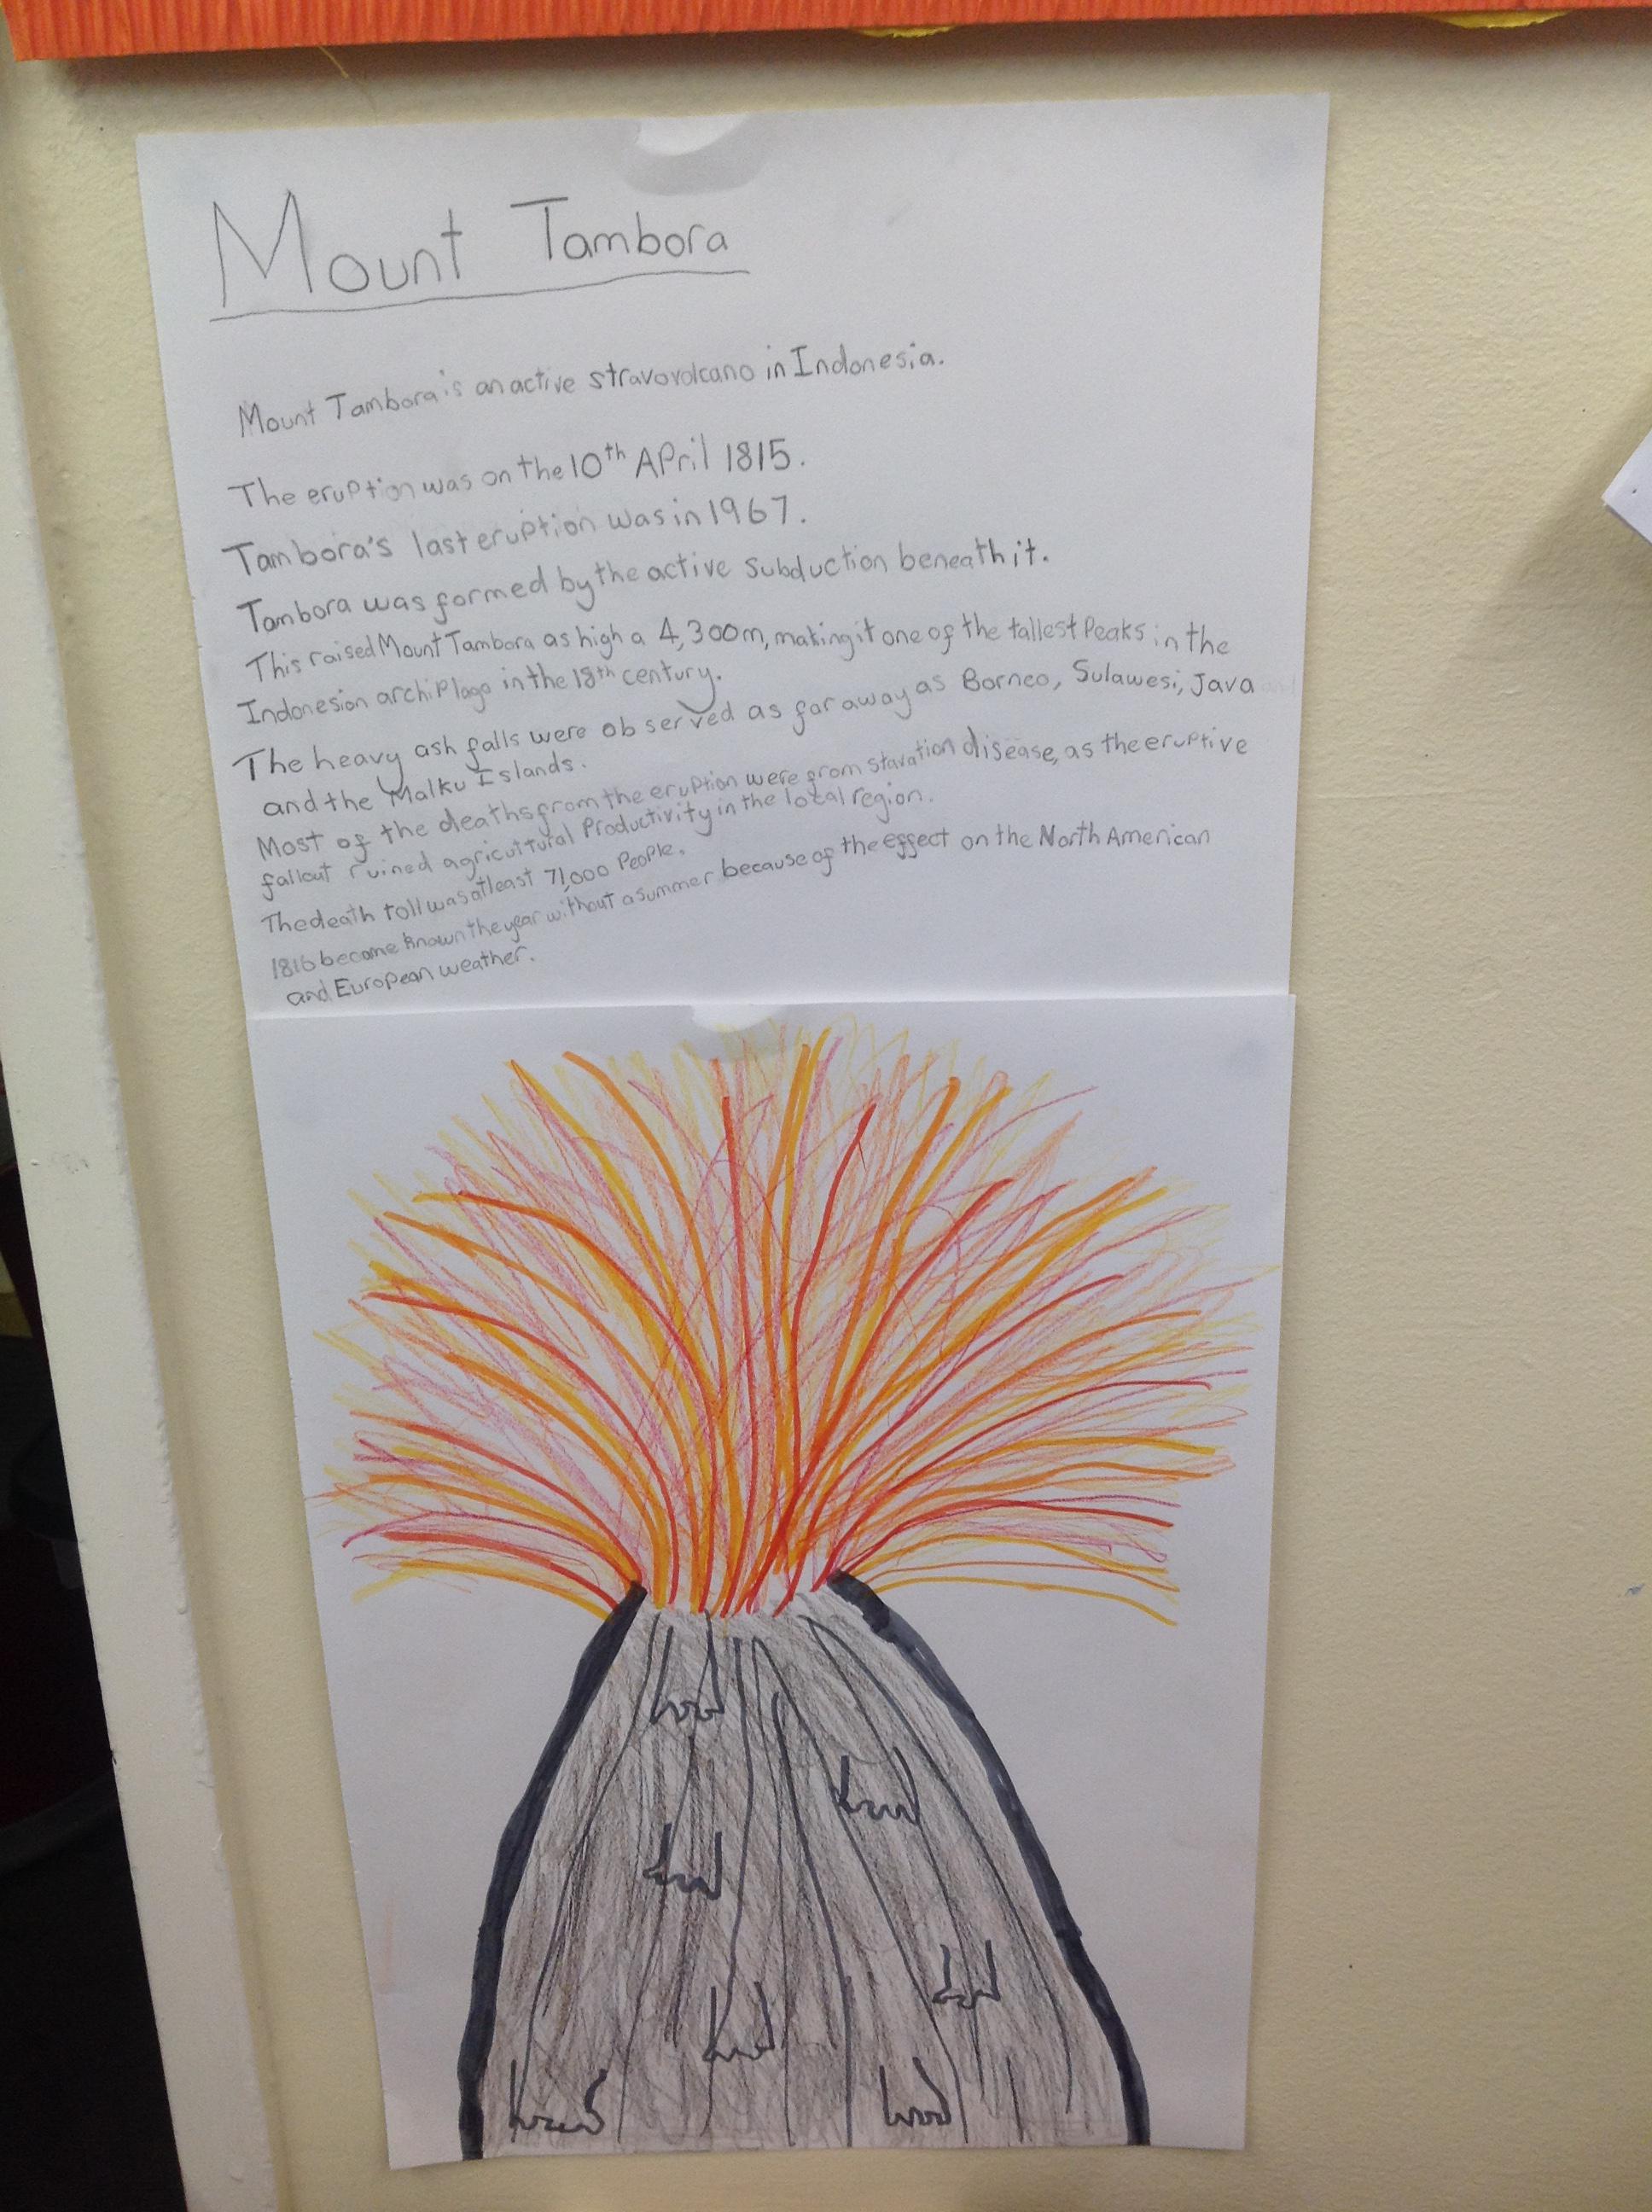 Mount Tambora
Mount Tambora is an active stravovolcano in Indonesia.
The eruption was on the 10th April 1815.
Tambora's last eruption was in 1967.
Tambora was formed by the active subduction beneath it.
This raised Mount Tambora as high a 4,300m, making it one of the tallest Peaks in the
Indonesion archiPlago in the 18th century.
The heavy ash falls were observed as far away as Borneo, Sulawesi, Java
and the Malku Islands.
Most of the deaths from the eruption were from stavation disease, as the eruptive
fallout ruined agricultural Productivity in the local region.
The death toll was atleast 71,000 PeoPle.
1816 become known the year without a summer because of the effect on the North American
and European weather.